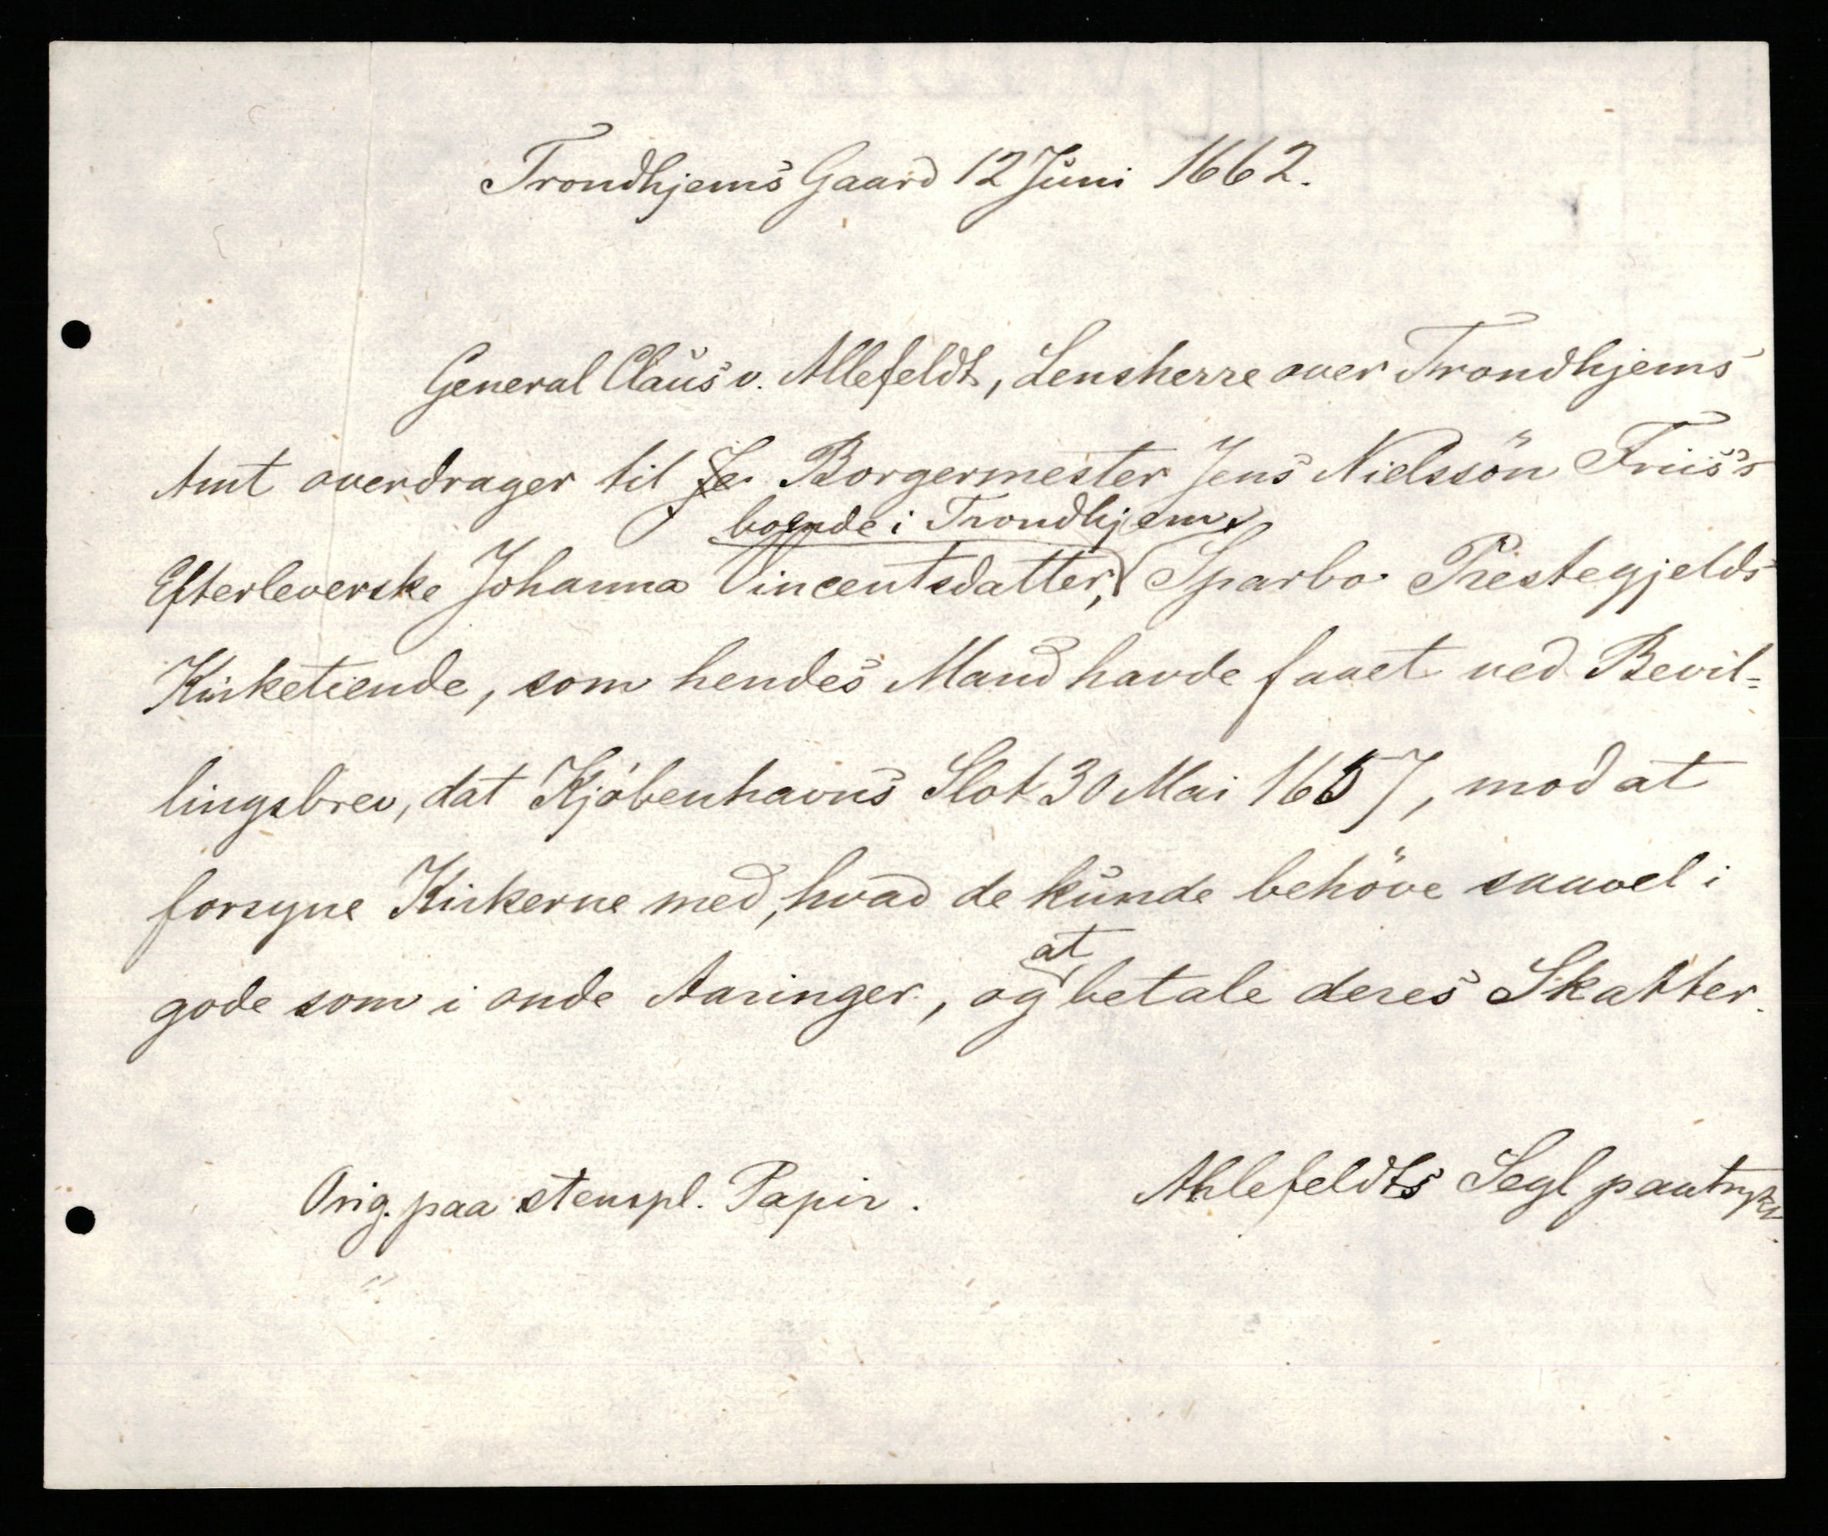 Trondhjems Gaard 12 Juni 1662.
General Claus v. Allefeldt, Lensherre over Trondhjems
Amt overdrager til Je Borgermester Jens Nielssön Friis's
boende i Trondhjem,
Efterleverske Johanna Vincentsdatter, Sparbo Prestegjelds
Kirketiende, som hendes Mand havde faaet ved Bevil=
lingsbrev, dat Kjøbenhavns Slot 30 Mai 1657, mod at
forsyne Kirkerne med, hvad de kunde behöve saavel i
at
gode som i onde Aaringer, og betale deres Skatter.
Orig. paa stempl. Papir.
Ahlefeldts Segl paatrykt.